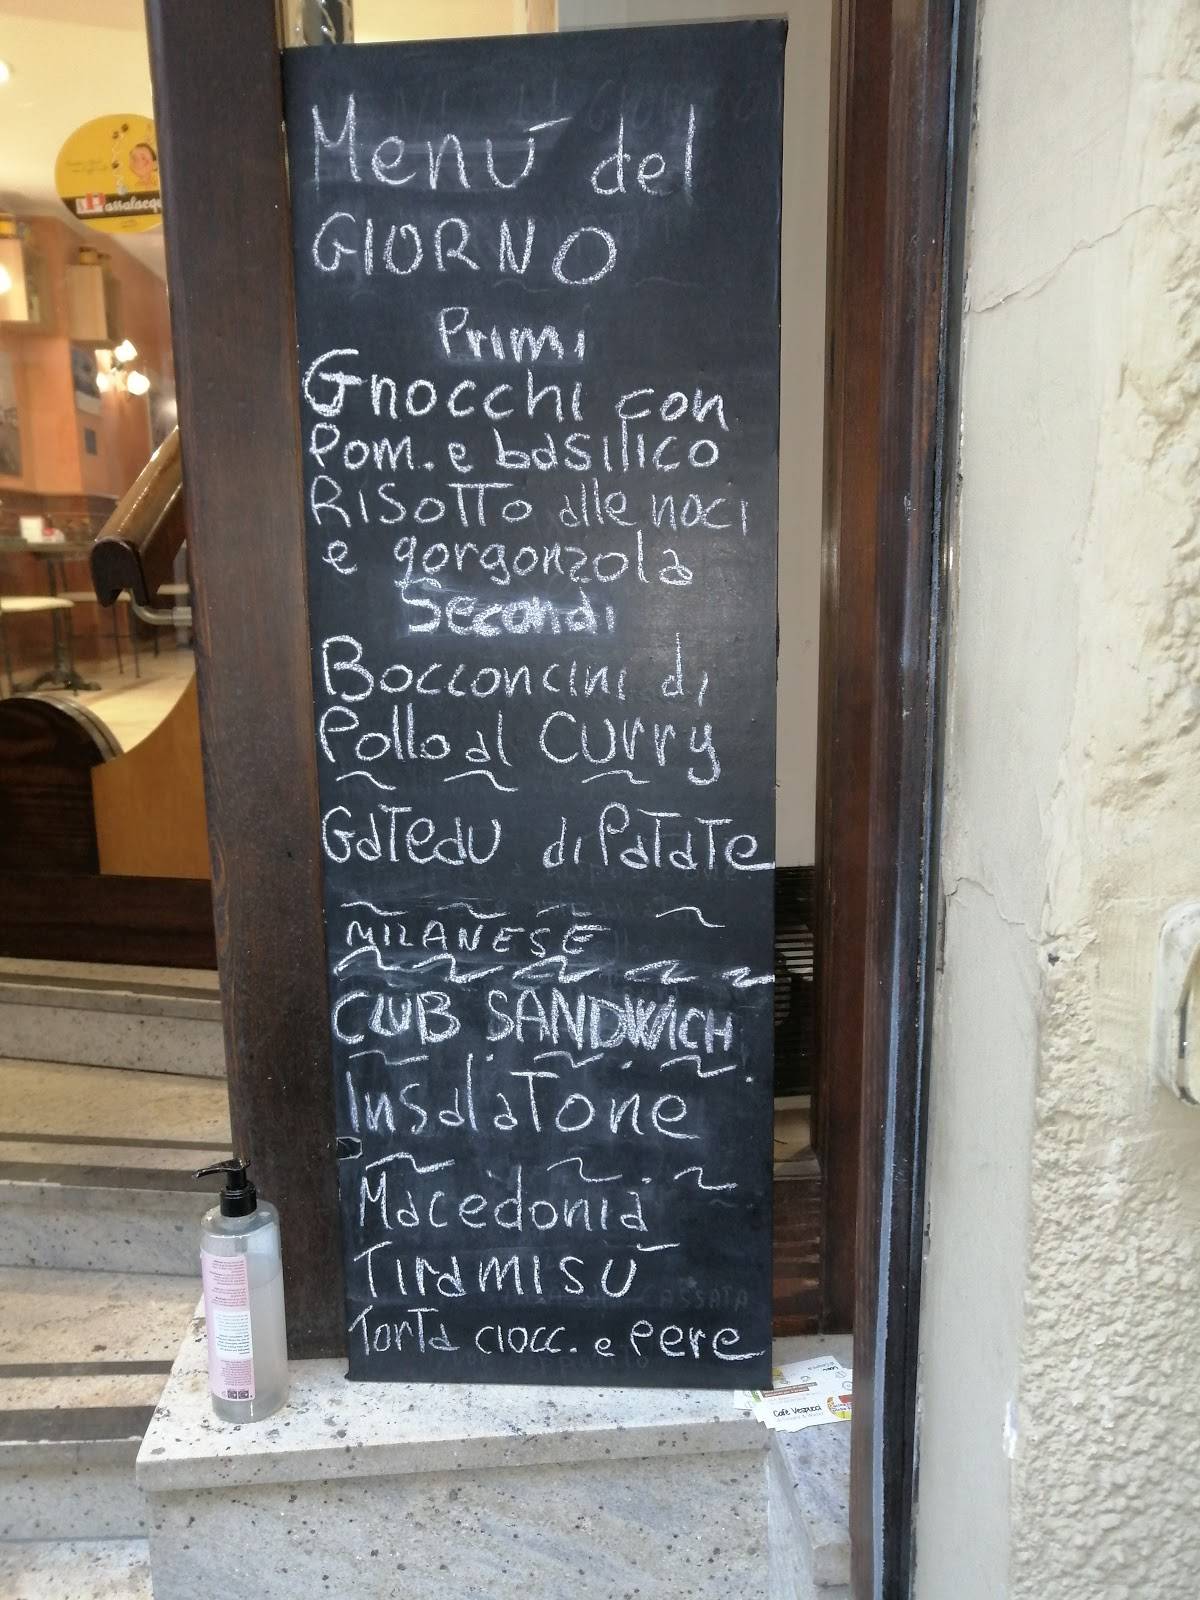 Menù del
GIORNO
Primi
Gnocchi con
Pom. e basilico
Risotto alle noci
e gorgonzola
Secondi
Bocconcini di
Pollo al Curry
Gateau di Patate
MILANESE
CLUB SANDWICH
Insalatone
Macedonia
Tiramisù
Torta ciocc. e Pere
Passalacqu
Cafè Vespucci